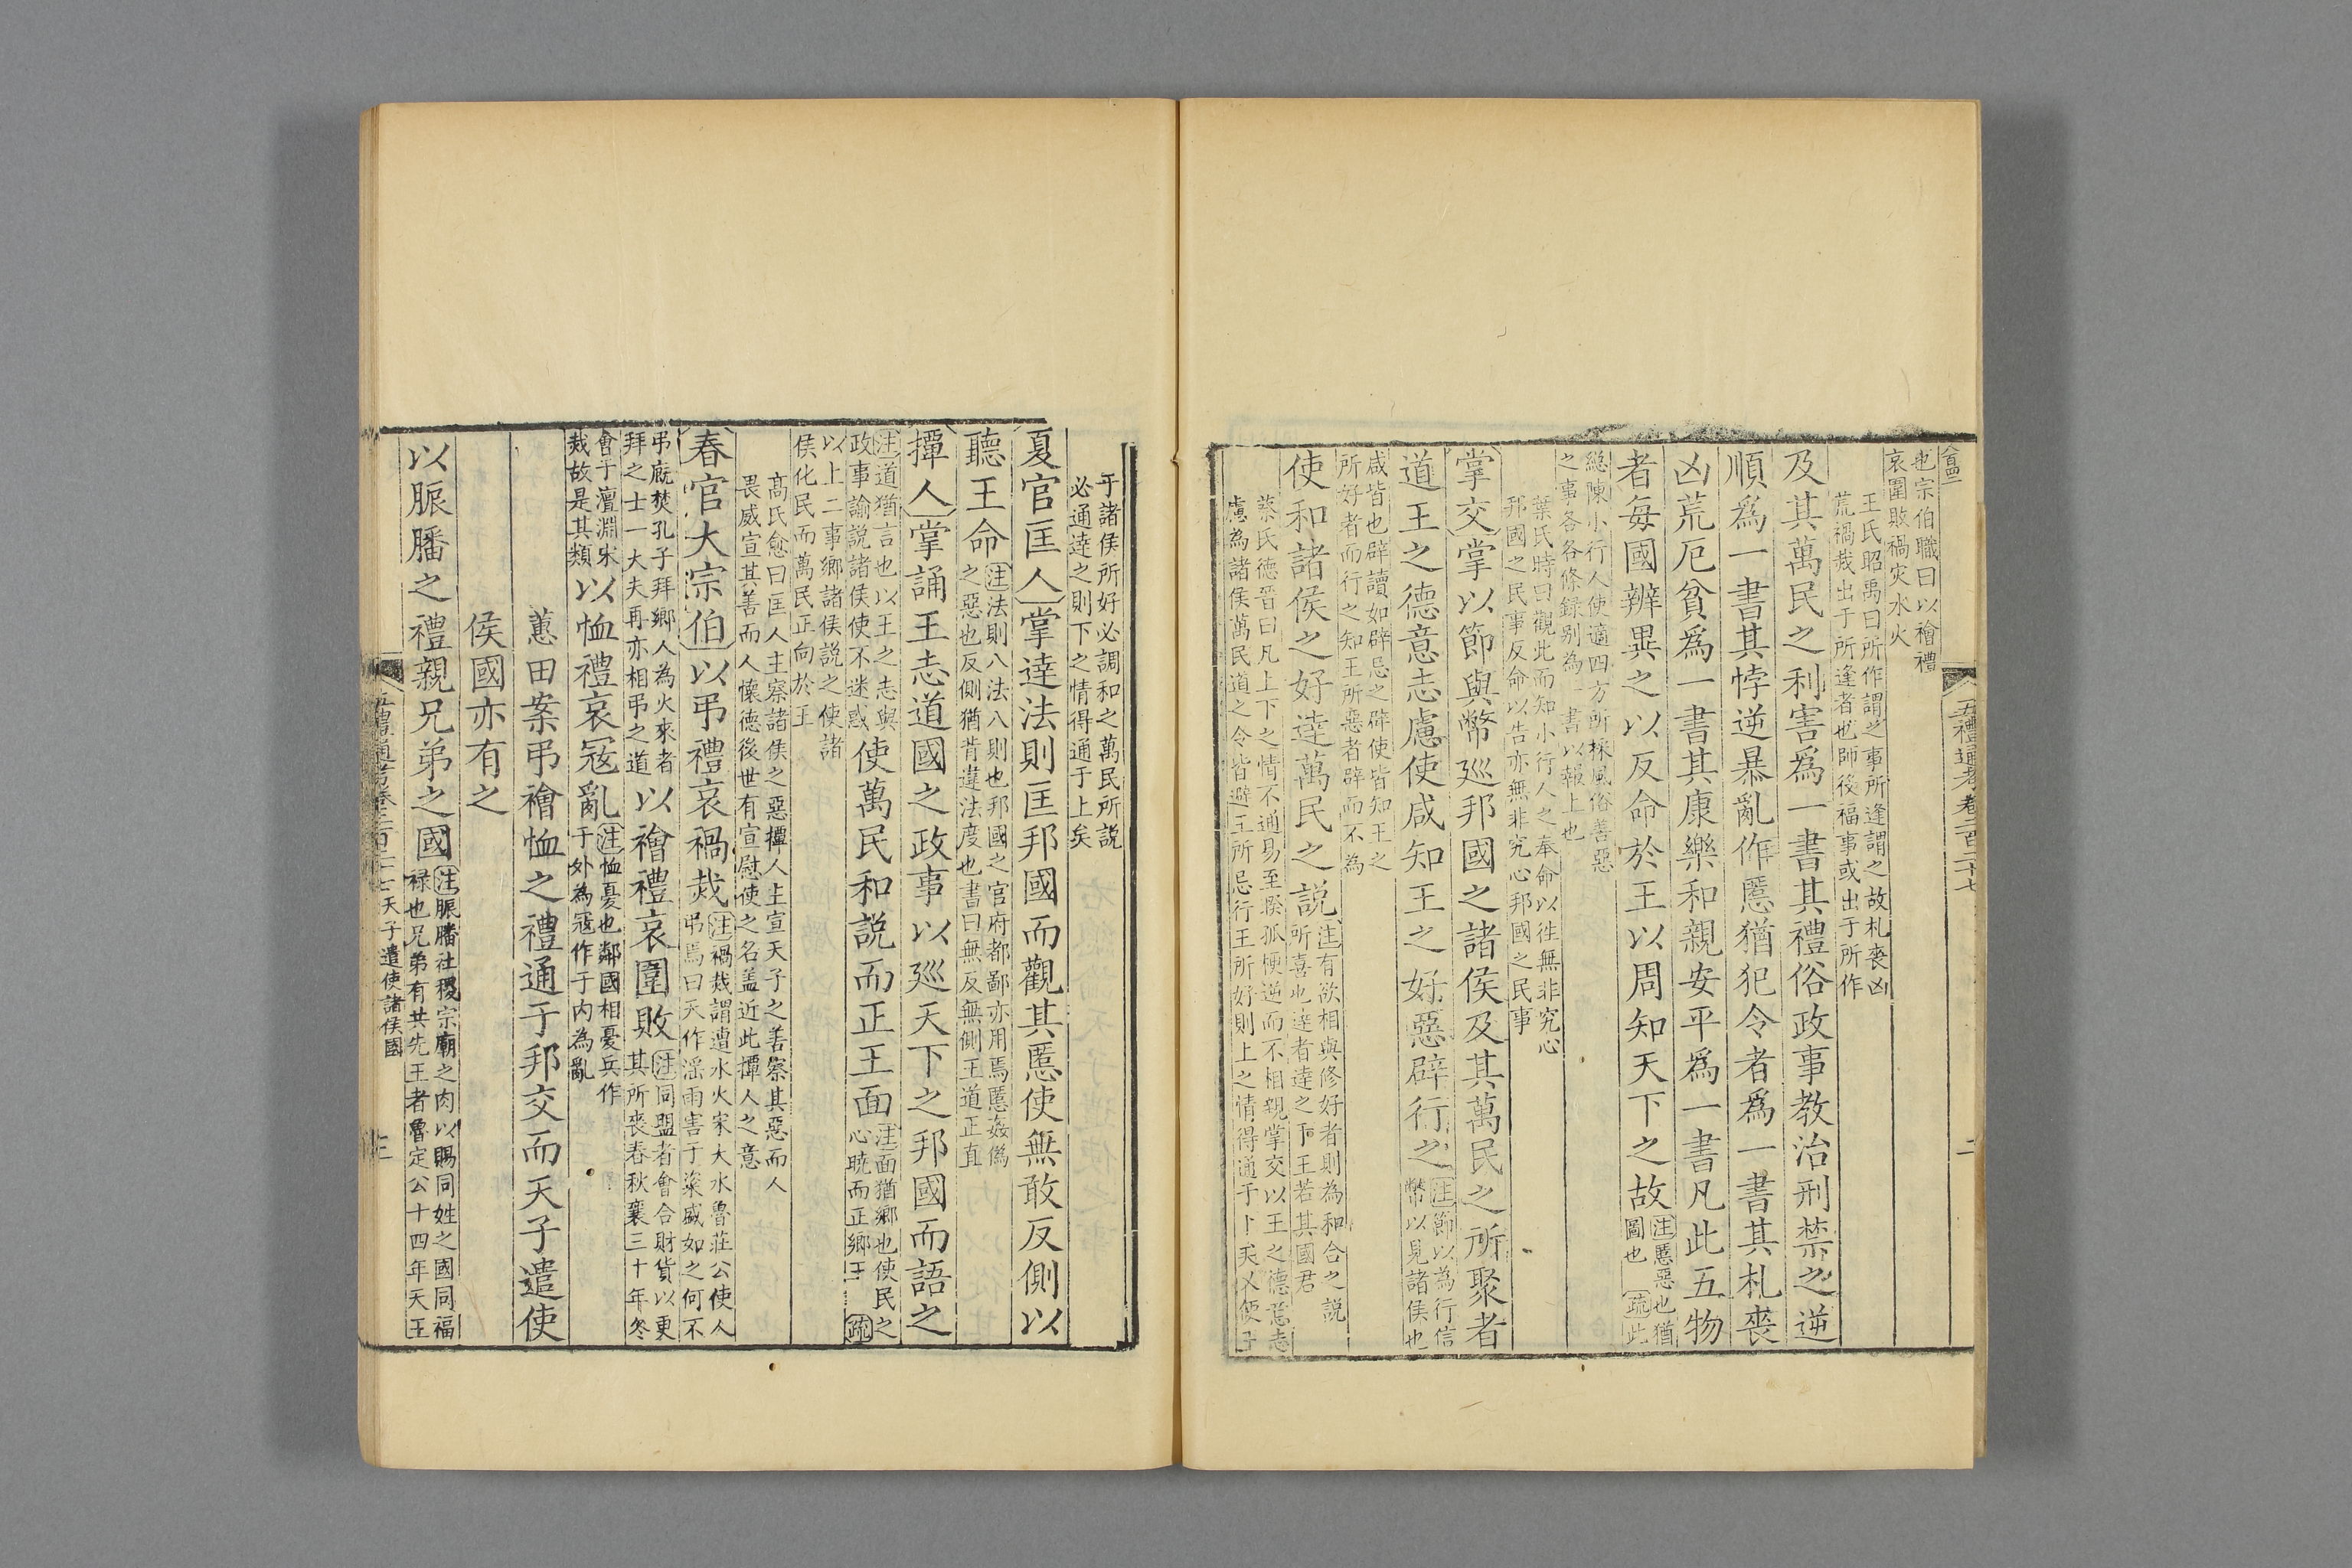 五禮通考卷二百二十七
二
也宗伯職曰以禬禮
哀圍敗禍灾水火
王氏昭禹曰所作謂之事所逢謂之故札喪凶
荒禍烖出于所逢者也師役福事或出于所作
及其萬民之利害爲一書其禮俗政事教治刑禁之逆
順爲一書其悖逆暴亂作慝猶犯令者爲一書其札喪
凶荒厄貧爲一書其康樂和親安平爲一書凡此五物
者每國辨異之以反命於王以周知天下之故注慝惡也猶
圖也 疏此
總陳小行人使適四方所採風俗善惡
之事各各條録别為一書以報上也
葉氏時曰觀此而知小行人之奉命以徃無非究心
邦國之民事反命以告亦無非究心邦國之民事
掌交掌以節與幣廵邦國之諸侯及其萬民之所聚者
道王之德意志慮使咸知王之好惡辟行之注節以為行信
幣以見諸侯也
咸皆也辟讀如辟忌之辟使皆知王之
所好者而行之知王所惡者辟而不為
使和諸侯之好逹萬民之説注有欲相與修好者則為和合之説
所喜也逹者逹之于王若其國君
蔡氏德晉曰凡上下之情不通易至睽孤悖逆而不相親掌交以王之德意志
慮為諸侯萬民道之令皆避王所忌行王所好則上之情得通于下矣又使
于諸侯所好必調和之萬民所説
必通逹之則下之情得通于上矣
夏官匡人掌逹法則匡邦國而觀其慝使無敢反側以
聽王命注法則八法八則也邦國之官府都鄙亦用焉慝姦僞
之惡也反側猶背違法度也書曰無反無側王道正直
撢人掌誦王志道國之政事以廵天下之邦國而語之
注道猶言也以王之志與
政事諭説諸侯使不迷惑
使萬民和説而正王面注面猶鄉也使民之
心曉而正鄉王 疏
以上二事鄉諸侯説之使諸
侯化民而萬民正向於王
高氏愈曰匡人主察諸侯之惡撢人主宣天子之善察其惡而人
畏威宣其善而人懷德後世有宣慰使之名盖近此撢人之意
春官大宗伯以弔禮哀禍烖注禍烖謂遭水火宋大水魯莊公使人
弔焉曰天作淫雨害于粢盛如之何不
弔廐焚孔子拜鄉人為火來者
拜之士一大夫再亦相弔之道
以禬禮哀圍敗注同盟者會合財貨以更
其所喪春秋襄三十年冬
會于澶淵宋
烖故是其類
以恤禮哀寇亂注恤憂也鄰國相憂兵作
于外為寇作于内為亂
蕙田案弔禬恤之禮通于邦交而天子遣使
侯國亦有之
以脤膰之禮親兄弟之國注脤膰社稷宗廟之肉以賜同姓之國同福
禄也兄弟有共先王者魯定公十四年天王
五禮通考卷二百二十七 天子遣使諸侯國